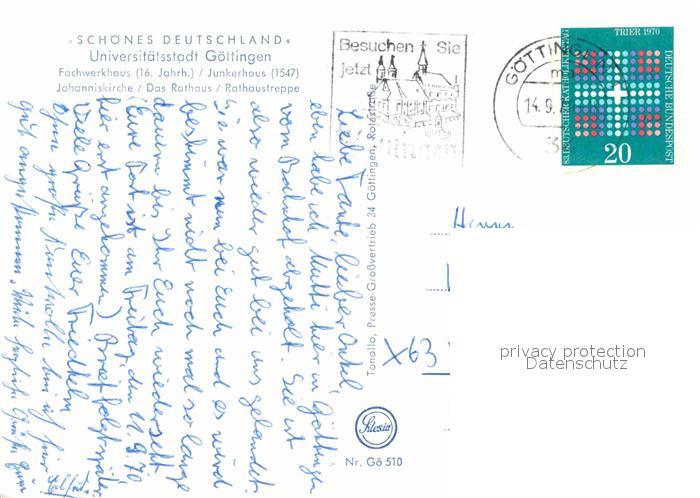 »SCHÖNES DEUTSCHLAND«
Universitätsstadt Göttingen
Fachwerkhaus (16. Jahrh.) / Junkerhaus (1547)
Johanniskirche / Das Rathaus / Rathaustreppe
Besuchen Sie
jetzt
Göttingen
GÖTTINGEN
14.9.
TRIER 1970
83. DEUTSCHER KATHOLIKENTAG
DEUTSCHE BUNDESPOST
20
Liebe Tante, lieber Onkel
eben habe ich Mutti hier in Göttingen
vom Bahnhof abgeholt. Sie ist
also wieder gut bei uns gelandet.
Sie war nun bei Euch und es wird
bestimmt nicht noch mal so lange
dauern bis Ihr Euch wiederseht
(Eure Post ist am Freitag, den 11.9.70
hier erst angekommen) Brief folgt später
Viele Grüße Euer Friedhelm
Ohne große Kontrolle bin ich hier
gut angekommen. Viele herzliche Grüße
Tonallo, Presse-Großvertrieb 34 Göttingen, Rotestraße
X63
Silesia
Nr. Gö 510
privacy protection
Datenschutz